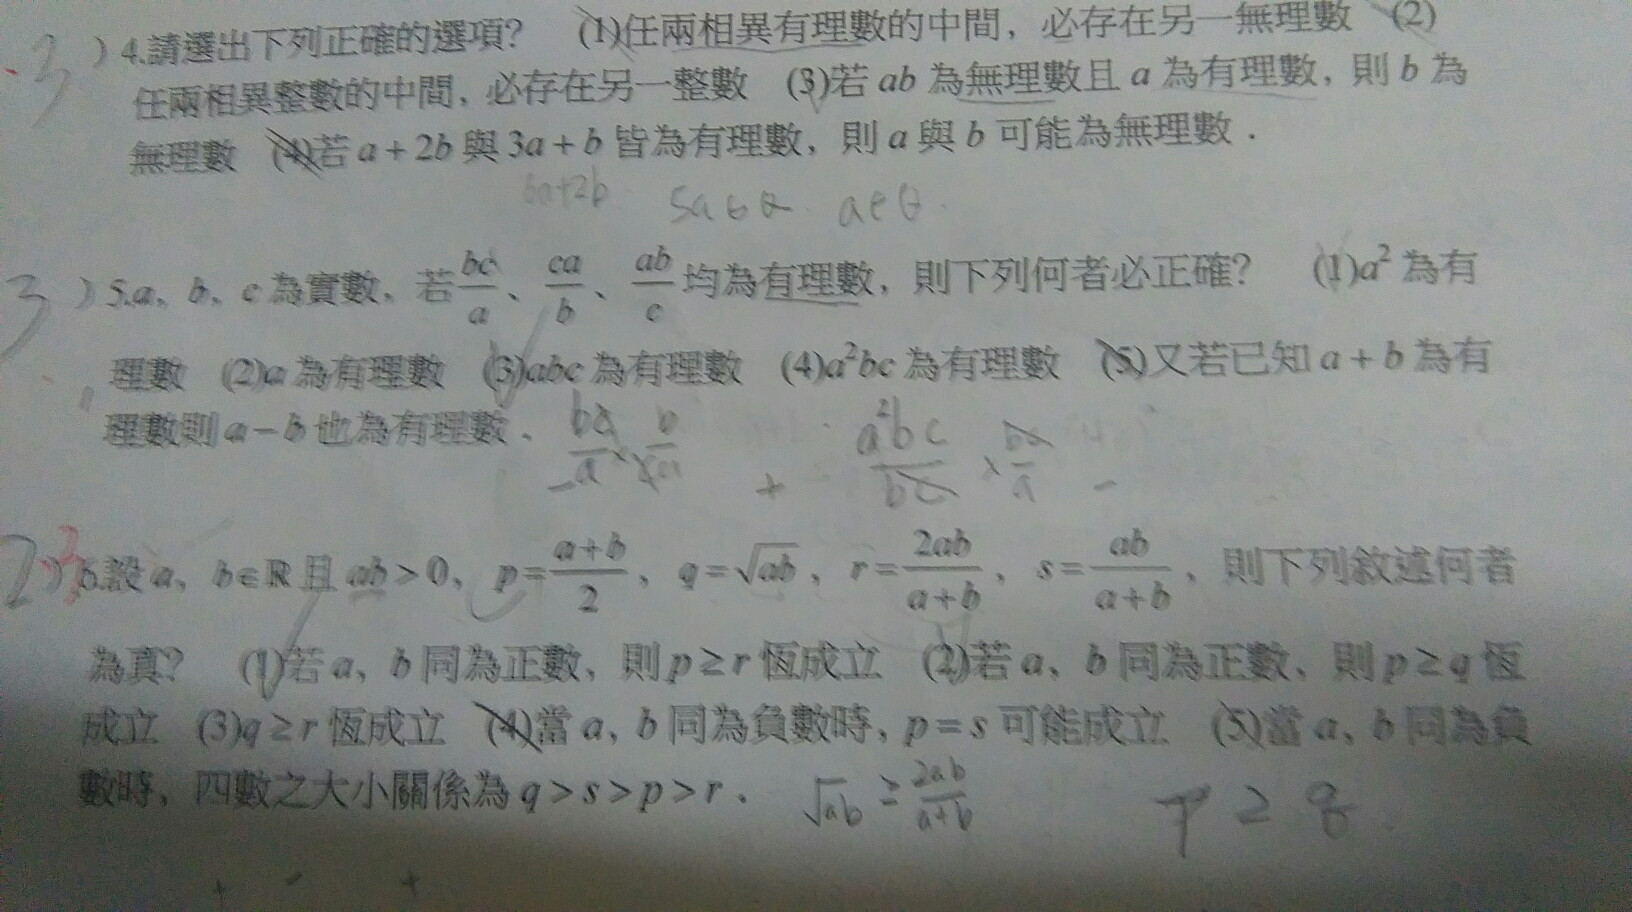 3 ) 4.請選出下列正確的選項? (1)任兩相異有理數的中間，必存在另一無理數 (2)
任兩相異整數的中間，必存在另一整數 (3)若 ab 為無理數且 a 為有理數，則 b 為
無理數 (4)若 a + 2b 與 3a + b 皆為有理數，則 a 與 b 可能為無理數．
6a+2b 5a∈Q a∈Q
3 ) 5.a，b，c 為實數，若 bc/a、ca/b、ab/c 均為有理數，則下列何者必正確? (1)a² 為有
理數 (2)a 為有理數 (3)abc 為有理數 (4)a²bc 為有理數 (5)又若已知 a + b 為有
理數則 a − b 也為有理數．
a²bc/bc × bc/a
− + −
23 ) 6.設 a，b∈ℝ 且 ab > 0，p = (a+b)/2，q = √ab，r = 2ab/(a+b)，s = ab/(a+b)，則下列敘述何者
為真? (1)若 a，b 同為正數，則 p ≥ r 恆成立 (2)若 a，b 同為正數，則 p ≥ q 恆
成立 (3)q ≥ r 恆成立 (4)當 a，b 同為負數時，p = s 可能成立 (5)當 a，b 同為負
數時，四數之大小關係為 q > s > p > r．
√ab ≥ 2ab/(a+b) p ≥ q
+ − +